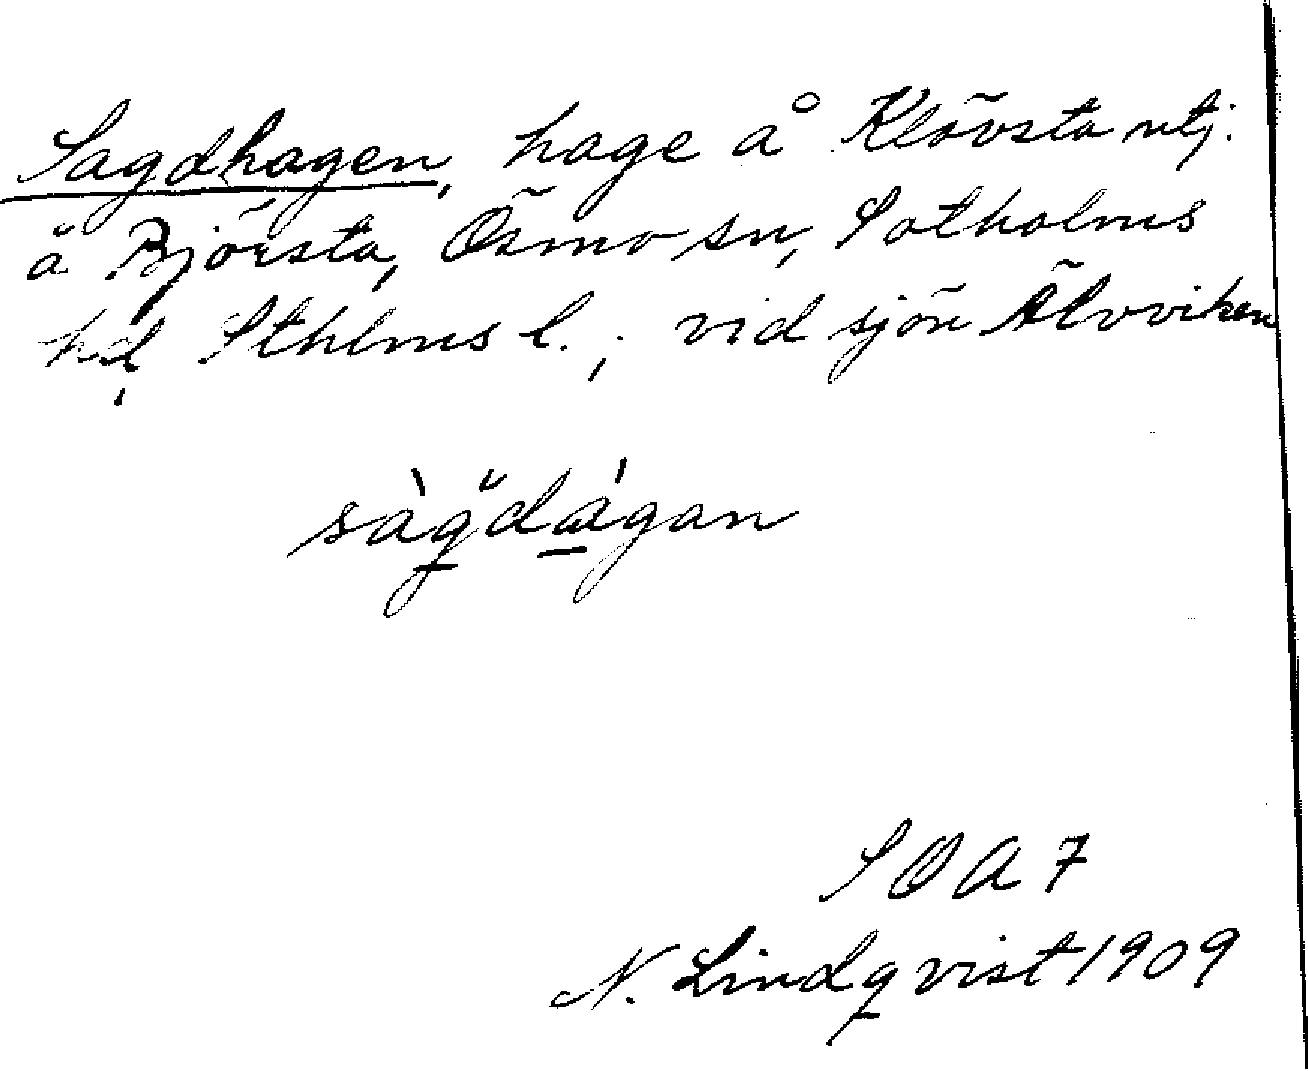 Sagdhagen, hage å Klövsta utj.
å Björsta, Ösmo sn, Sotholms
hd, Sthlms l.; vid sjön Älvviken
sàğdágan
SOA 7
N. Lindqvist 1909